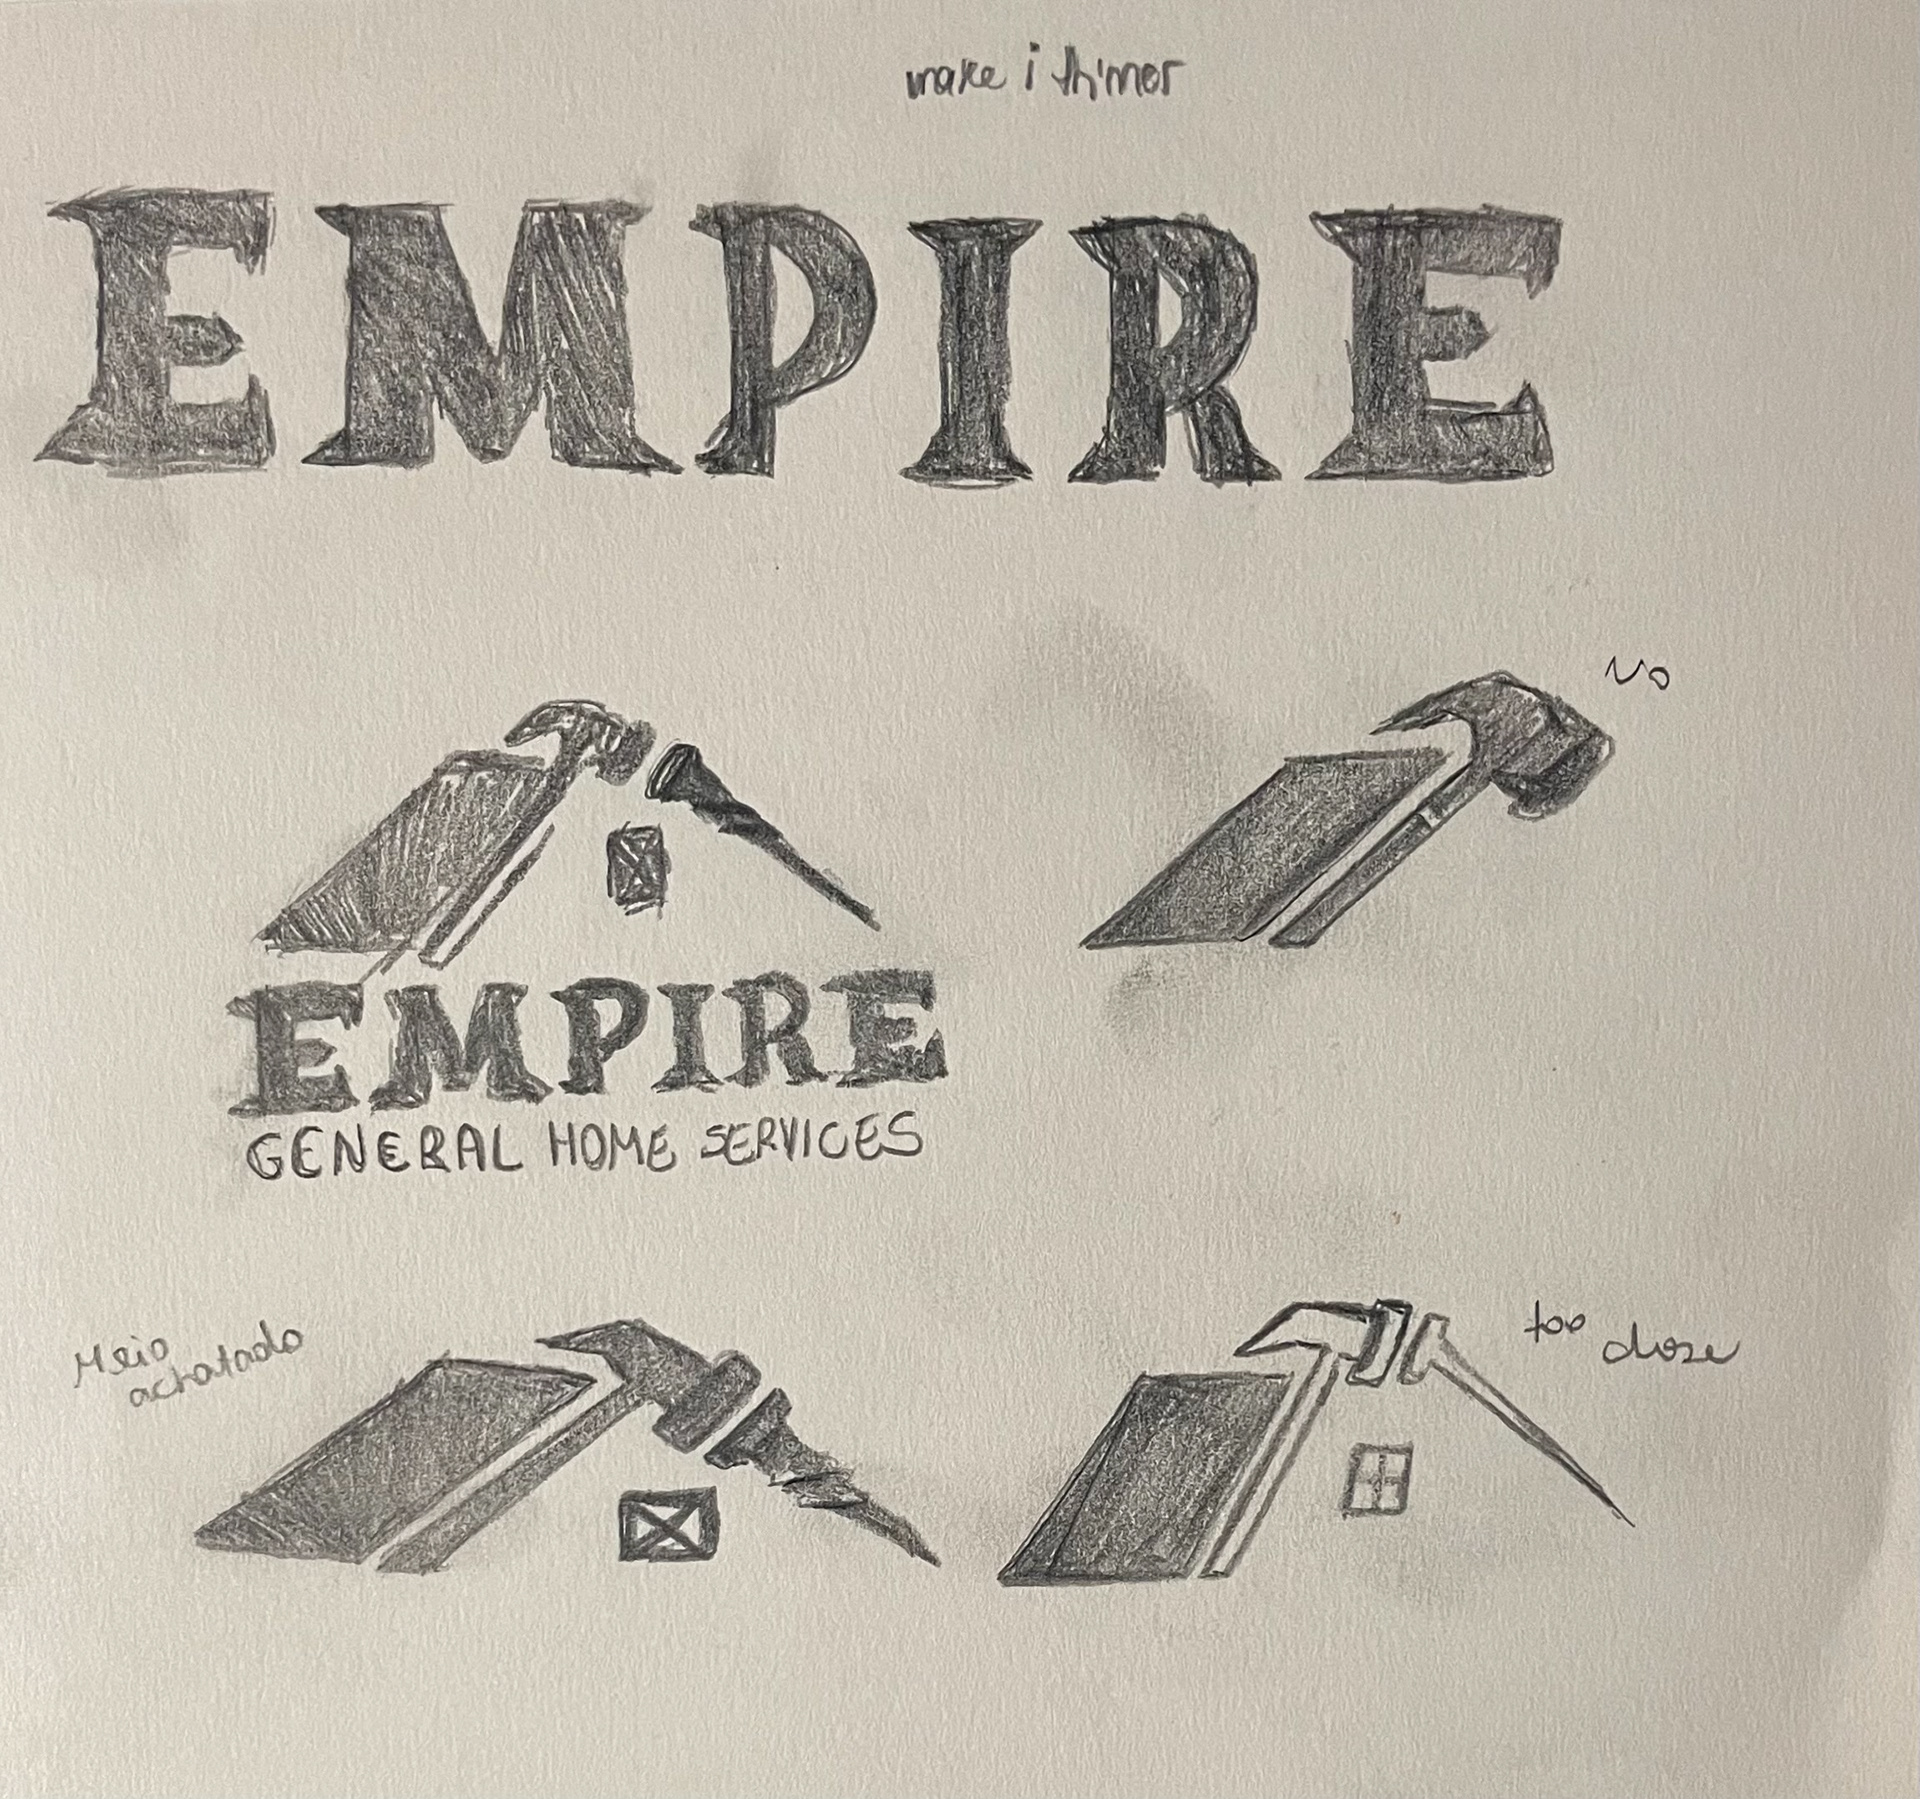 make i thinner
EMPIRE
NO
EMPIRE
GENERAL HOME SERVICES
Meio
achatado
too close